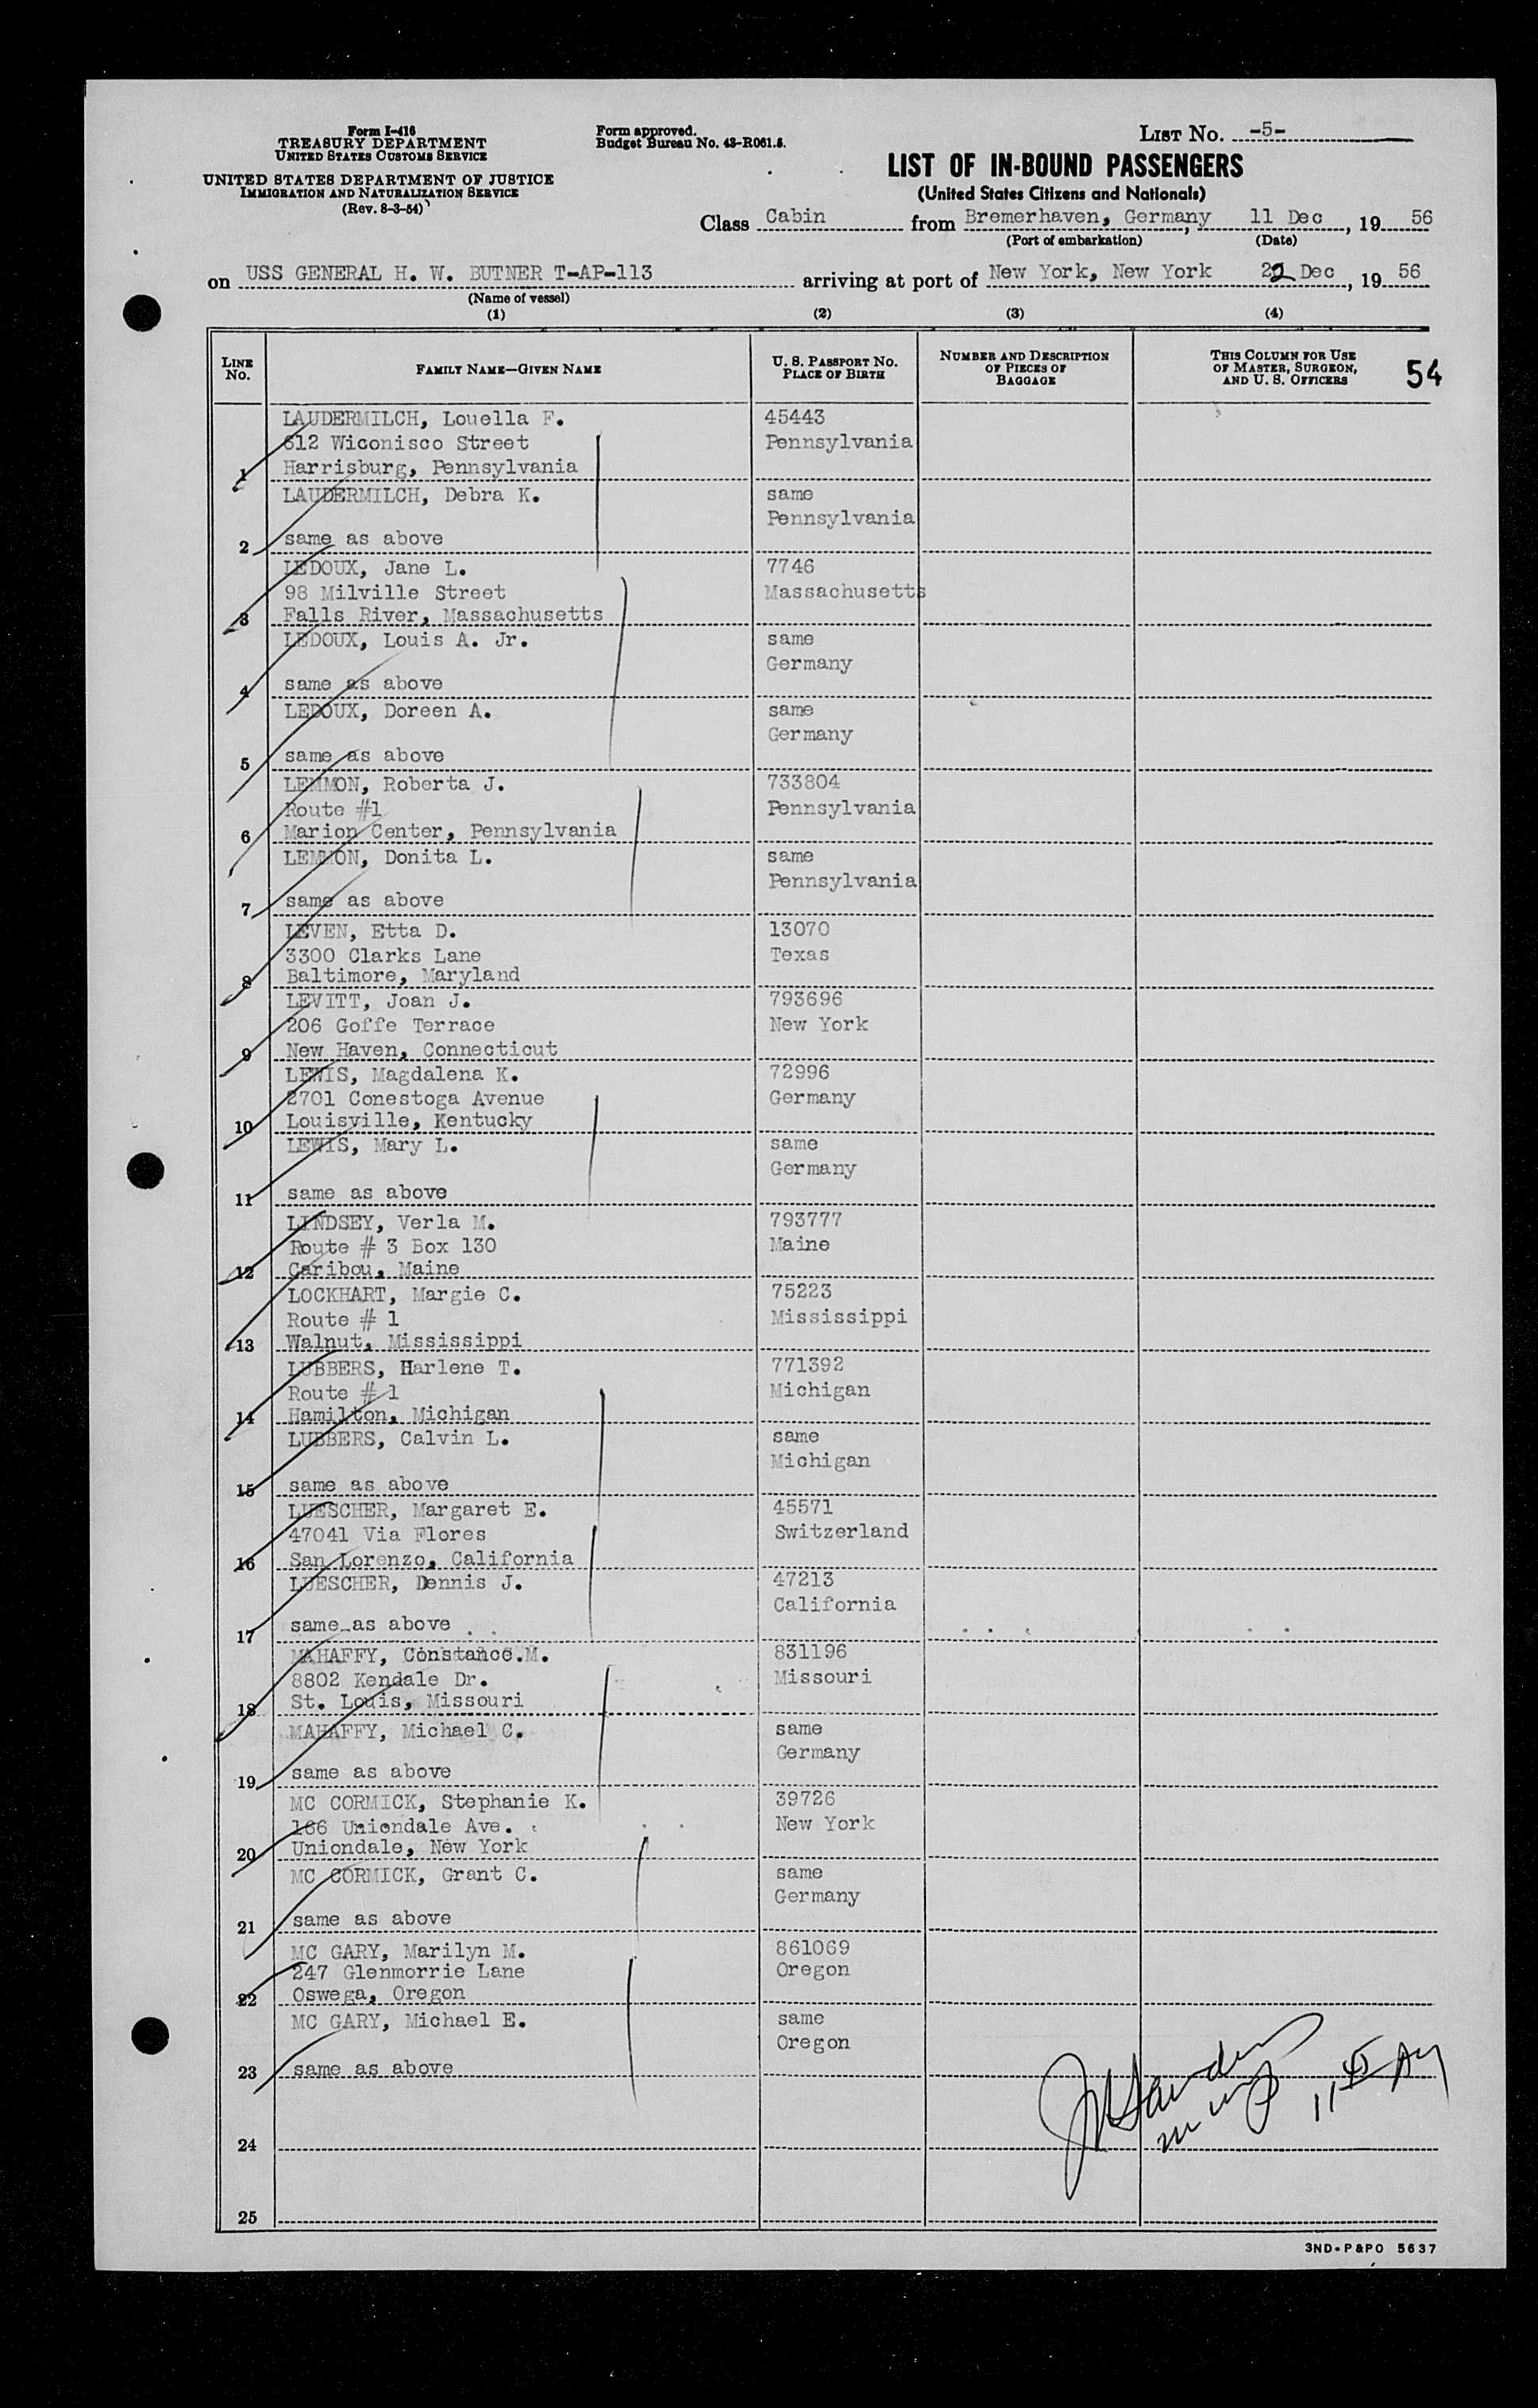 Form I-416
TREASURY DEPARTMENT
UNITED STATES CUSTOMS SERVICE
UNITED STATES DEPARTMENT OF JUSTICE
IMMIGRATION AND NATURALIZATION SERVICE
(Rev. 8-3-54)
Form approved.
Budget Bureau No. 43-R061.5.
LIST No. -5-
LIST OF IN-BOUND PASSENGERS
(United States Citizens and Nationals)
Class Cabin from Bremerhaven, Germany, 11 Dec, 19 56
(Port of embarkation) (Date)
on USS GENERAL H. W. BUTNER T-AP-113 arriving at port of New York, New York 22 Dec, 19 56
(Name of vessel)
(1) (2) (3) (4)
LINE No. FAMILY NAME—GIVEN NAME U. S. PASSPORT NO. PLACE OF BIRTH NUMBER AND DESCRIPTION OF PIECES OF BAGGAGE THIS COLUMN FOR USE OF MASTER, SURGEON, AND U. S. OFFICERS 54
LAUDERMILCH, Louella F. 45443
612 Wiconisco Street Pennsylvania
1 Harrisburg, Pennsylvania
LAUDERMILCH, Debra K. same
Pennsylvania
2 same as above
LEDOUX, Jane L. 7746
98 Milville Street Massachusetts
3 Falls River, Massachusetts
LEDOUX, Louis A. Jr. same
Germany
4 same as above
LEDOUX, Doreen A. same
Germany
5 same as above
LEMMON, Roberta J. 733804
Route #1 Pennsylvania
6 Marion Center, Pennsylvania
LEMMON, Donita L. same
Pennsylvania
7 same as above
LEVEN, Etta D. 13070
3300 Clarks Lane Texas
8 Baltimore, Maryland
LEVITT, Joan J. 793696
206 Goffe Terrace New York
9 New Haven, Connecticut
LEWIS, Magdalena K. 72996
2701 Conestoga Avenue Germany
10 Louisville, Kentucky
LEWIS, Mary L. same
Germany
11 same as above
LINDSEY, Verla M. 793777
Route # 3 Box 130 Maine
12 Caribou, Maine
LOCKHART, Margie C. 75223
Route # 1 Mississippi
13 Walnut, Mississippi
LUBBERS, Harlene T. 771392
Route # 1 Michigan
14 Hamilton, Michigan
LUBBERS, Calvin L. same
Michigan
15 same as above
LUESCHER, Margaret E. 45571
47041 Via Flores Switzerland
16 San Lorenzo, California
LUESCHER, Dennis J. 47213
California
17 same as above
MAHAFFY, Constance.M. 831196
8802 Kendale Dr. Missouri
18 St. Louis, Missouri
MAHAFFY, Michael C. same
Germany
19 same as above
MC CORMICK, Stephanie K. 39726
166 Uniondale Ave. New York
20 Uniondale, New York
MC CORMICK, Grant C. same
Germany
21 same as above
MC GARY, Marilyn M. 861069
247 Glenmorrie Lane Oregon
22 Oswega, Oregon
MC GARY, Michael E. same
Oregon
23 same as above
24
25
3ND-P&PO 5637